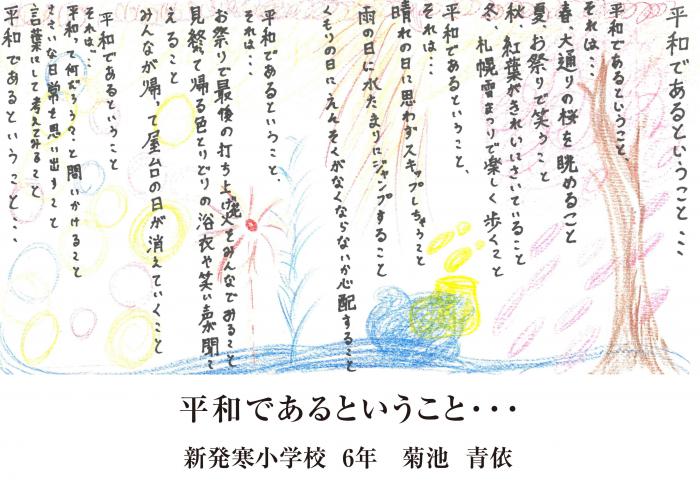 平和であるということ・・・
平和であるということ、
それは・・・
春、大通りの桜を眺めること
夏、お祭りで笑うこと
秋、紅葉がきれいにさいていること
冬、札幌雪まつりで楽しく歩くこと
平和であるということ、
それは・・・
晴れの日に思わずスキップしちゃうこと
雨の日に水たまりにジャンプすること
くもりの日にえんそくがなくならないか心配すること
平和であるということ、
それは・・・
お祭りで最後の打ち上げ花火をみんなでみること
見終わって帰る色とりどりの浴衣や笑い声が聞こ
えること
みんなが帰って屋台の日が消えていくこと
平和であるということ
それは・・・
平和って何だろう？と問いかけること
ささいな日常を思い出すこと
言葉にして考えてみること
平和であるということ・・・
平和であるということ・・・
新発寒小学校 6年 菊池 青依